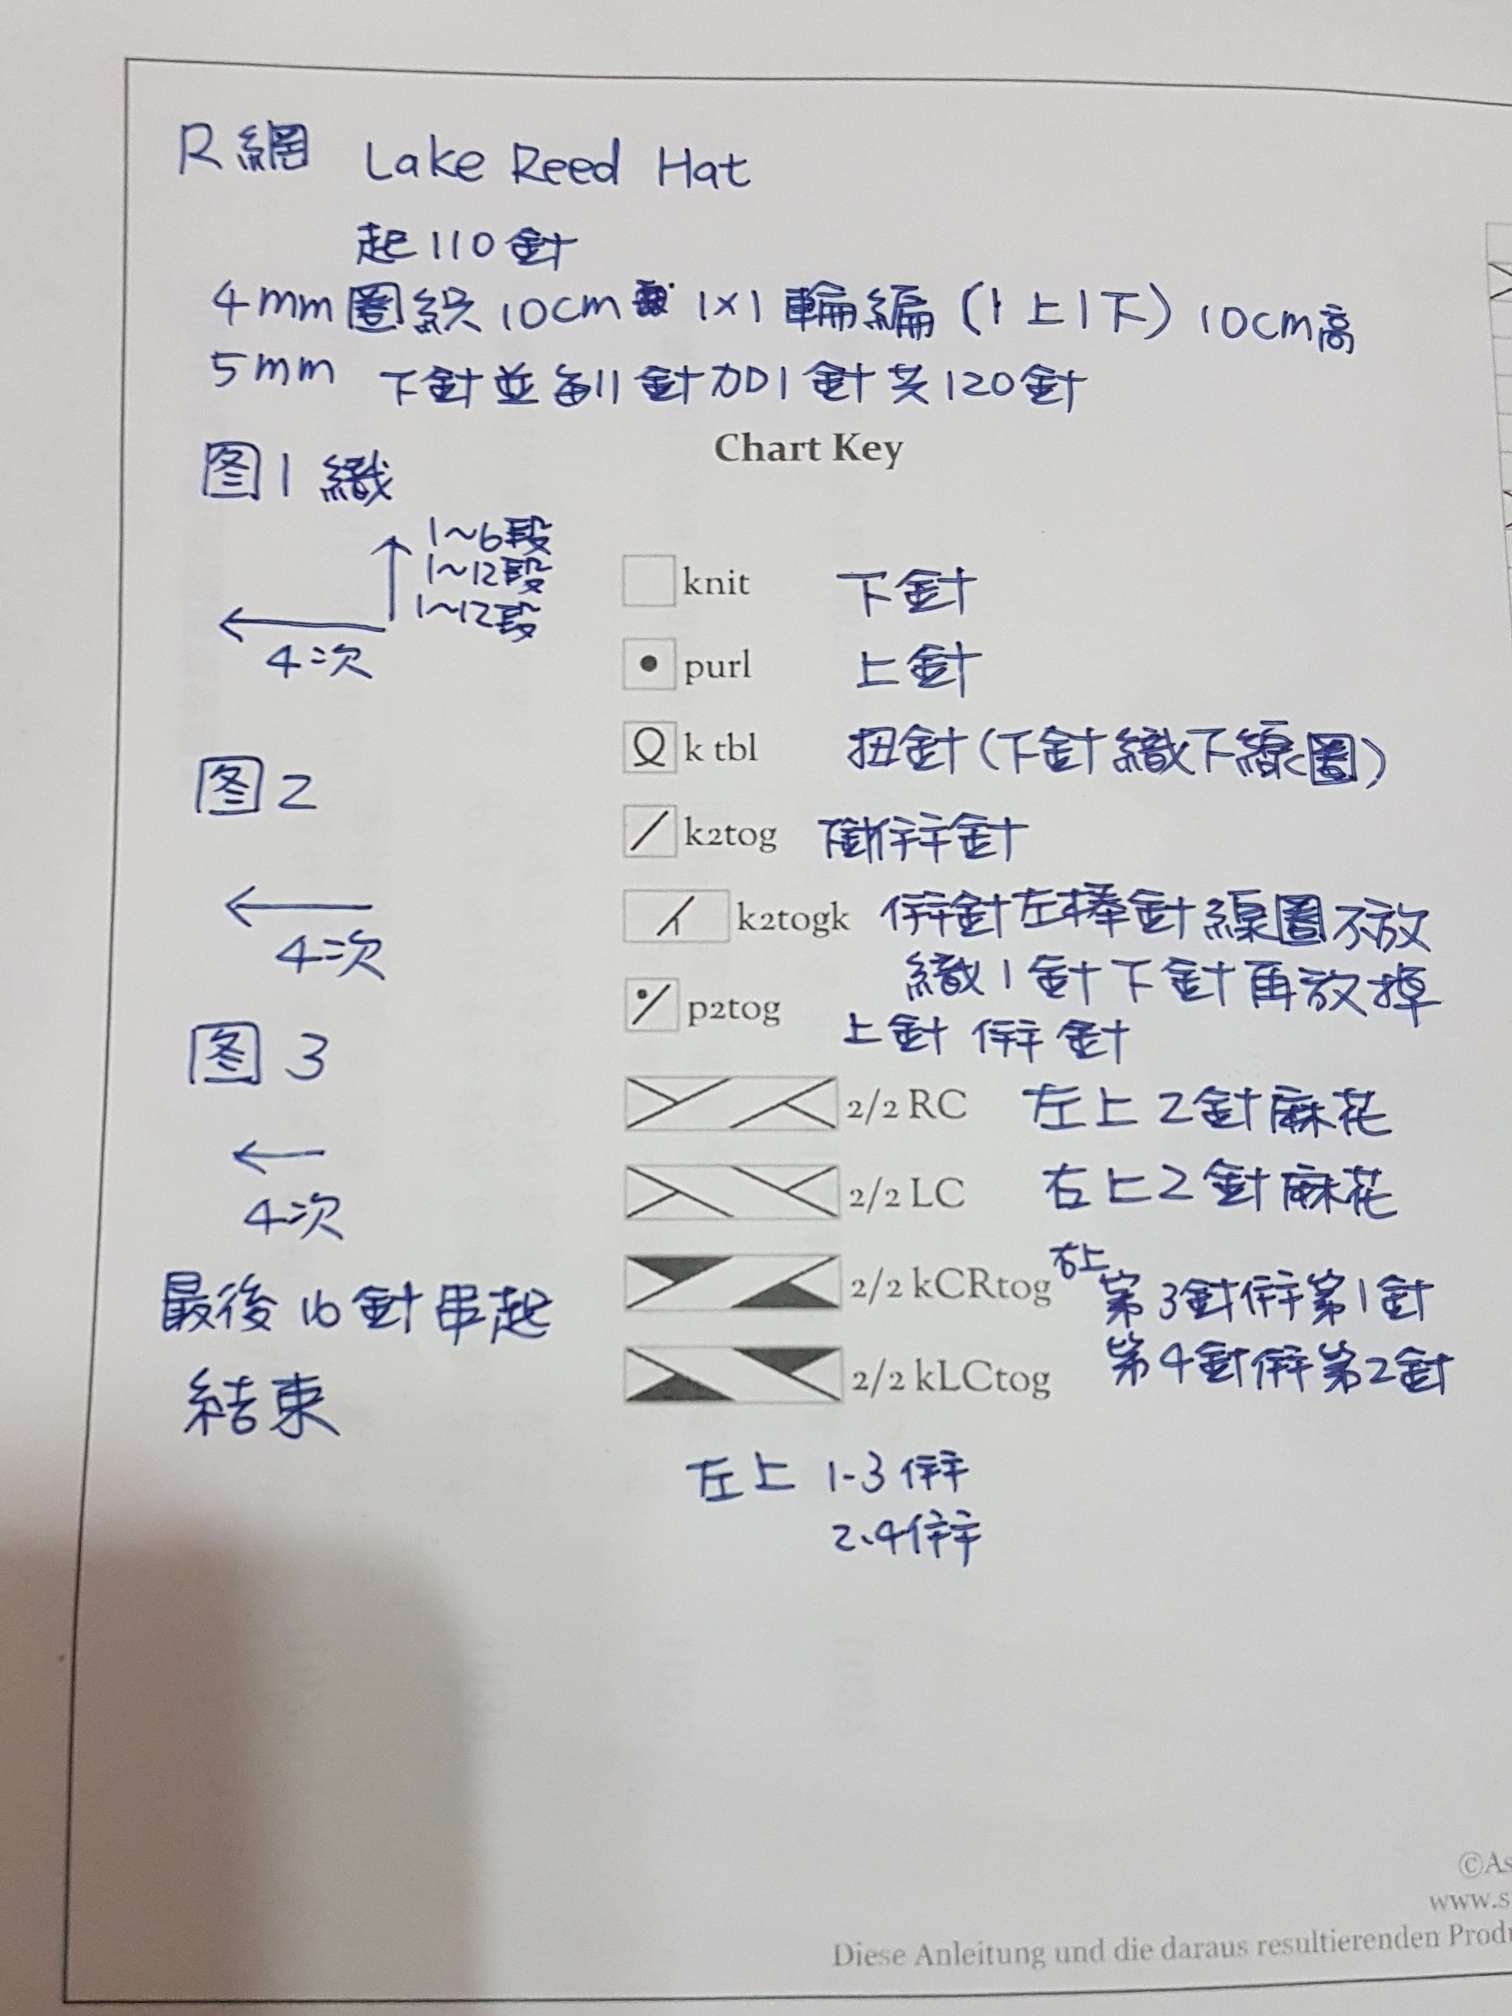 R網 Lake Reed Hat
起110針
4mm圈織10cm 1×1輪編(1上1下)10cm高
5mm 下針並每11針加1針共120針
Chart Key
图1織
1~6段
1~12段
1~12段
4次
knit 下針
purl 上針
k tbl 扭針(下針織下線圈)
图2
k2tog 下針併針
k2togk 併針左棒針線圈不放
織1針下針再放掉
4次
p2tog 上針併針
图3
2/2 RC 左上2針麻花
4次
2/2 LC 右上2針麻花
2/2 kCRtog 右上 第3針併第1針
第4針併第2針
最後16針串起
結束
2/2 kLCtog
左上 1-3併
2、4併
©As
www.s
Diese Anleitung und die daraus resultierenden Prod